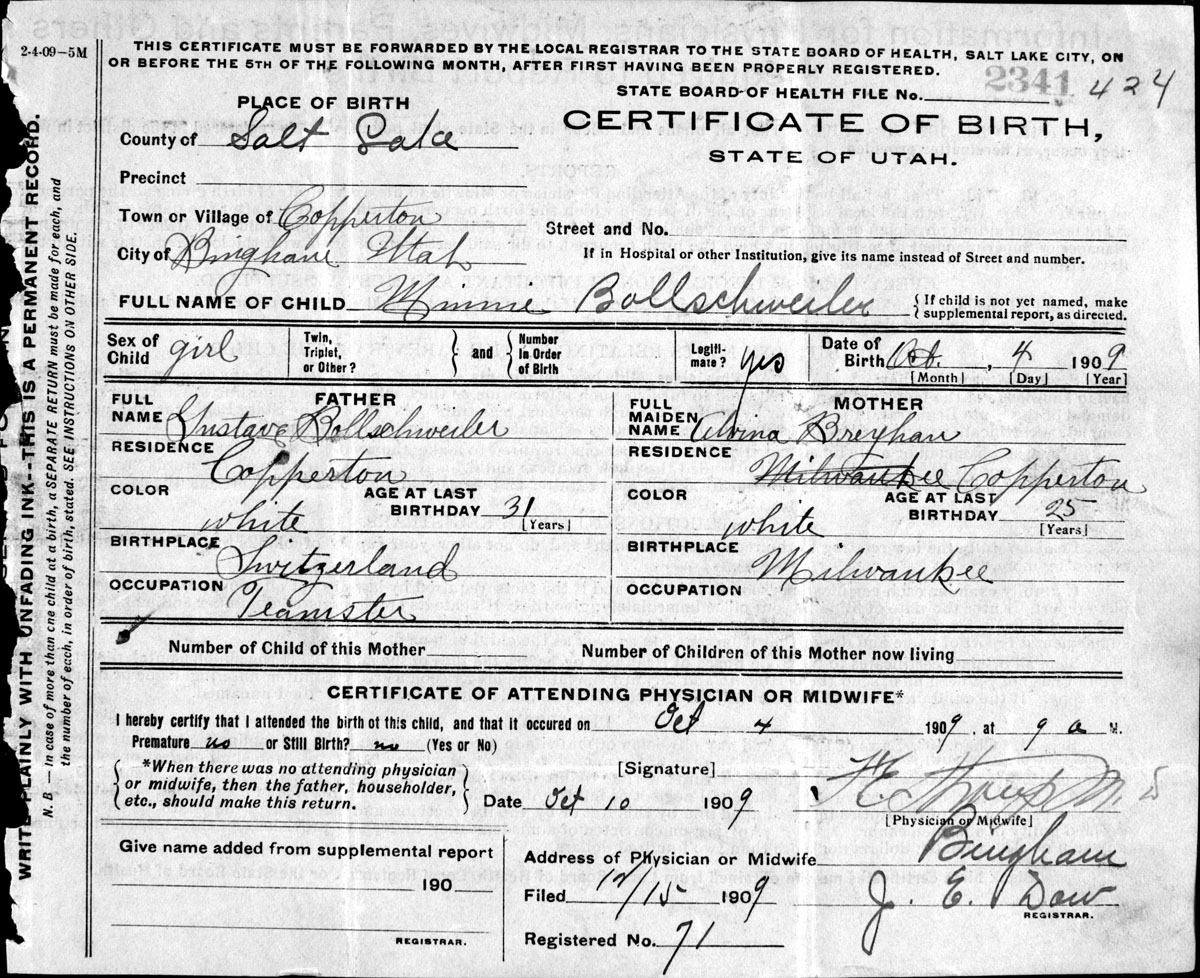 2-4-09-5M
THIS CERTIFICATE MUST BE FORWARDED BY THE LOCAL REGISTRAR TO THE STATE BOARD OF HEALTH, SALT LAKE CITY, ON
OR BEFORE THE 5TH OF THE FOLLOWING MONTH, AFTER FIRST HAVING BEEN PROPERLY REGISTERED.
2341
STATE BOARD OF HEALTH FILE No. 424
PLACE OF BIRTH
CERTIFICATE OF BIRTH,
STATE OF UTAH.
County of Salt Lake
Precinct
Town or Village of Copperton
Street and No.
City of Bingham Utah
If in Hospital or other Institution, give its name instead of Street and number.
FULL NAME OF CHILD Minnie Bollschweiler
{If child is not yet named, make
supplemental report, as directed.
Sex of Child girl
Twin, Triplet, or Other?
and
Number in Order of Birth
Legiti-mate? yes
Date of Birth Oct. , 4 1909
[Month] [Day] [Year]
FATHER
FULL NAME Gustave Bollschweiler
RESIDENCE
Copperton
COLOR
white
AGE AT LAST BIRTHDAY 31
[Years]
BIRTHPLACE
Switzerland
OCCUPATION
Teamster
MOTHER
FULL MAIDEN NAME Elvina Breyhan
RESIDENCE
Milwaukee Copperton
COLOR
white
AGE AT LAST BIRTHDAY 25
[Years]
BIRTHPLACE
Milwaukee
OCCUPATION
Number of Child of this Mother
Number of Children of this Mother now living
CERTIFICATE OF ATTENDING PHYSICIAN OR MIDWIFE*
I hereby certify that I attended the birth of this child, and that it occured on Oct 4 1909, at 9 a M.
Premature no or Still Birth? no (Yes or No)
{*When there was no attending physician
or midwife, then the father, householder,
etc., should make this return.}
[Signature]
M. D
[Physician or Midwife]
Date Oct 10 1909
Give name added from supplemental report
190
REGISTRAR.
Address of Physician or Midwife Bingham
Filed 12/15 1909
J. E. Dow
REGISTRAR.
Registered No. 71
WRITE PLAINLY WITH UNFADING INK--THIS IS A PERMANENT RECORD.
N. B.—In case of more than one child at a birth, a SEPARATE RETURN must be made for each, and
the number of each, in order of birth, stated. SEE INSTRUCTIONS ON OTHER SIDE.